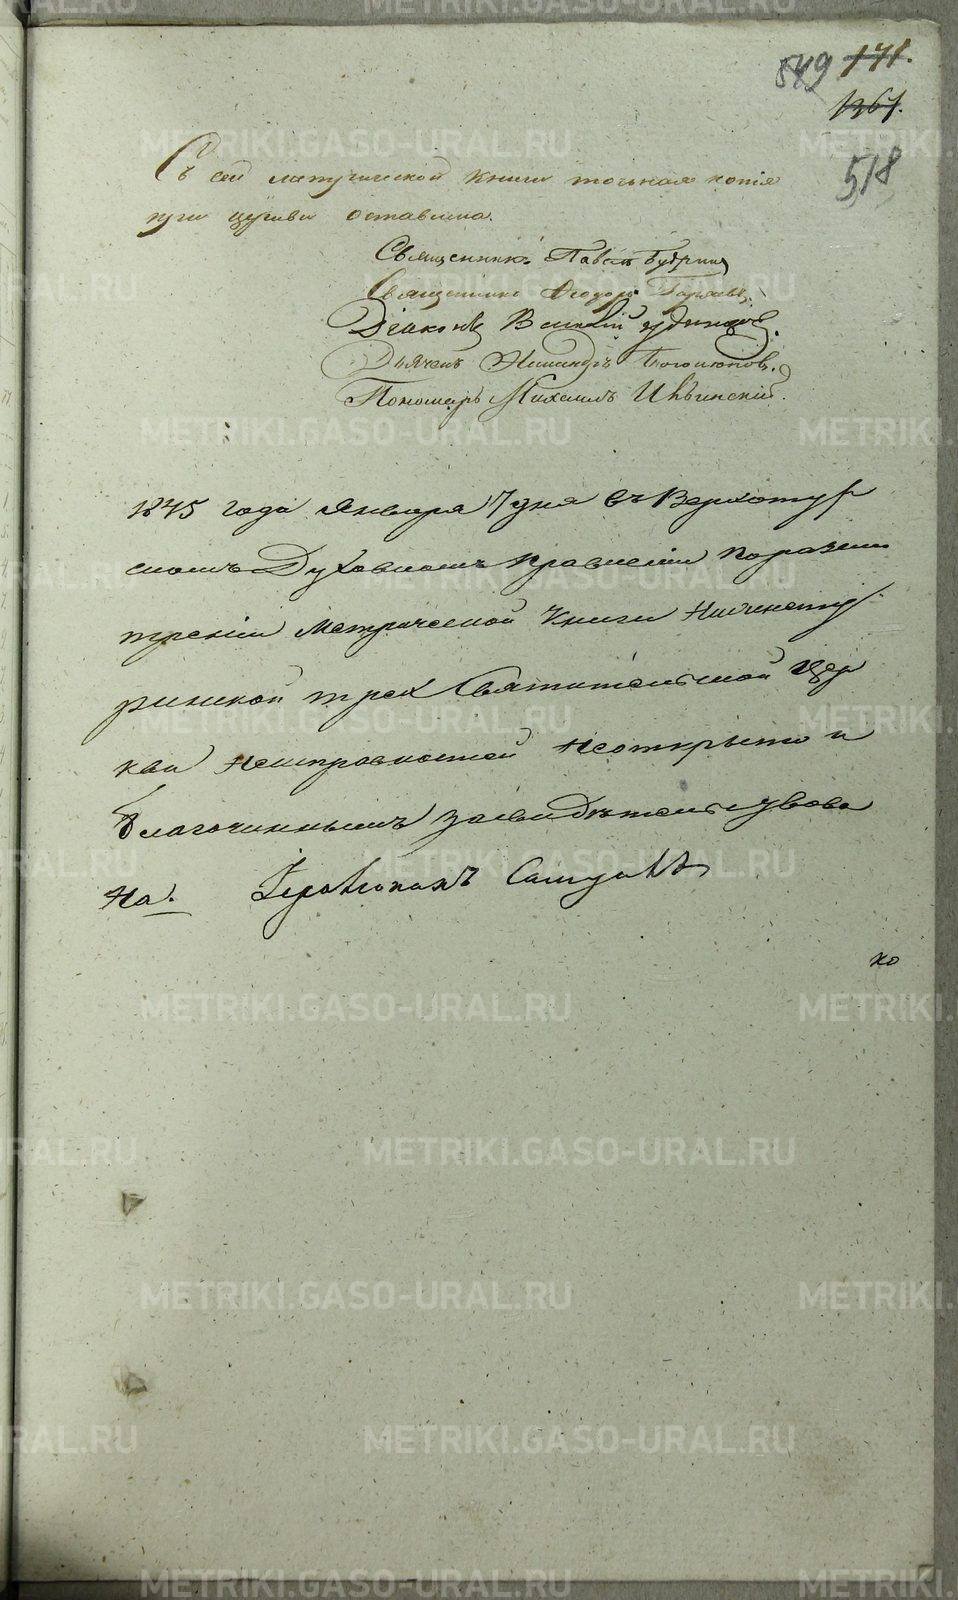 549 171.
1361.
518
Съ сей метрической книги точная копія
при церкви оставлена.
Священникъ Павелъ Бутринъ
Священникъ Ѳеодоръ
Діаконъ Василій Удинцовъ.
Дьячекъ
Пономарь Михаилъ Ивинскій.
1845 года Января 7 дня въ Верхотур
скомъ Духовномъ Правленіи по разсмо
трѣніи Метрической Книги Нижнетур
ринской трех Святительской Цер
кви неисправностей неотрыто и
Благочиннымъ засвидѣтельствова
на. Іеромонахъ
ко
METRIKI.GASO-URAL.RU